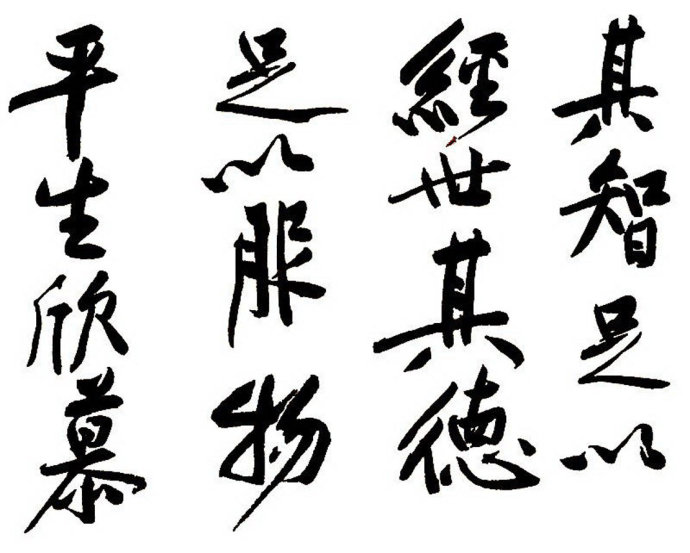 其智足以
經世其德
足以服物
平生欣慕